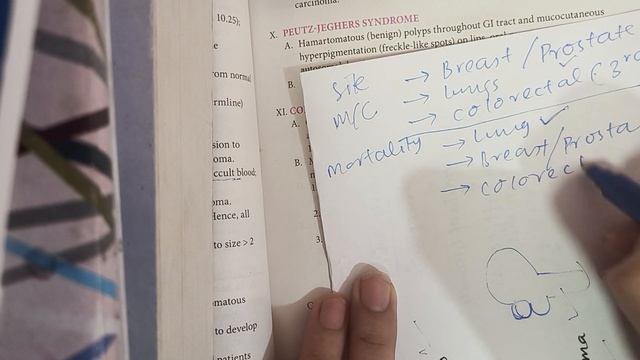 carcinoma.
10.25);
X. PEUTZ-JEGHERS SYNDROME
A. Hamartomatous (benign) polyps throughout GI tract and mucocutaneous
hyperpigmentation (freckle-like spots) on lips, oral
B.
XI. CO
A.
B.
rom normal
rmline)
sion to
oma.
ccult blood;
oma.
Hence, all
to size > 2
omatous
to develop
patients
2
3.
C
Site → Breast / Prostate
M/C → Lungs
→ colorectal (3rd
Mortality → Lung ✓
→ Breast / Prosta
→ colorect
ma